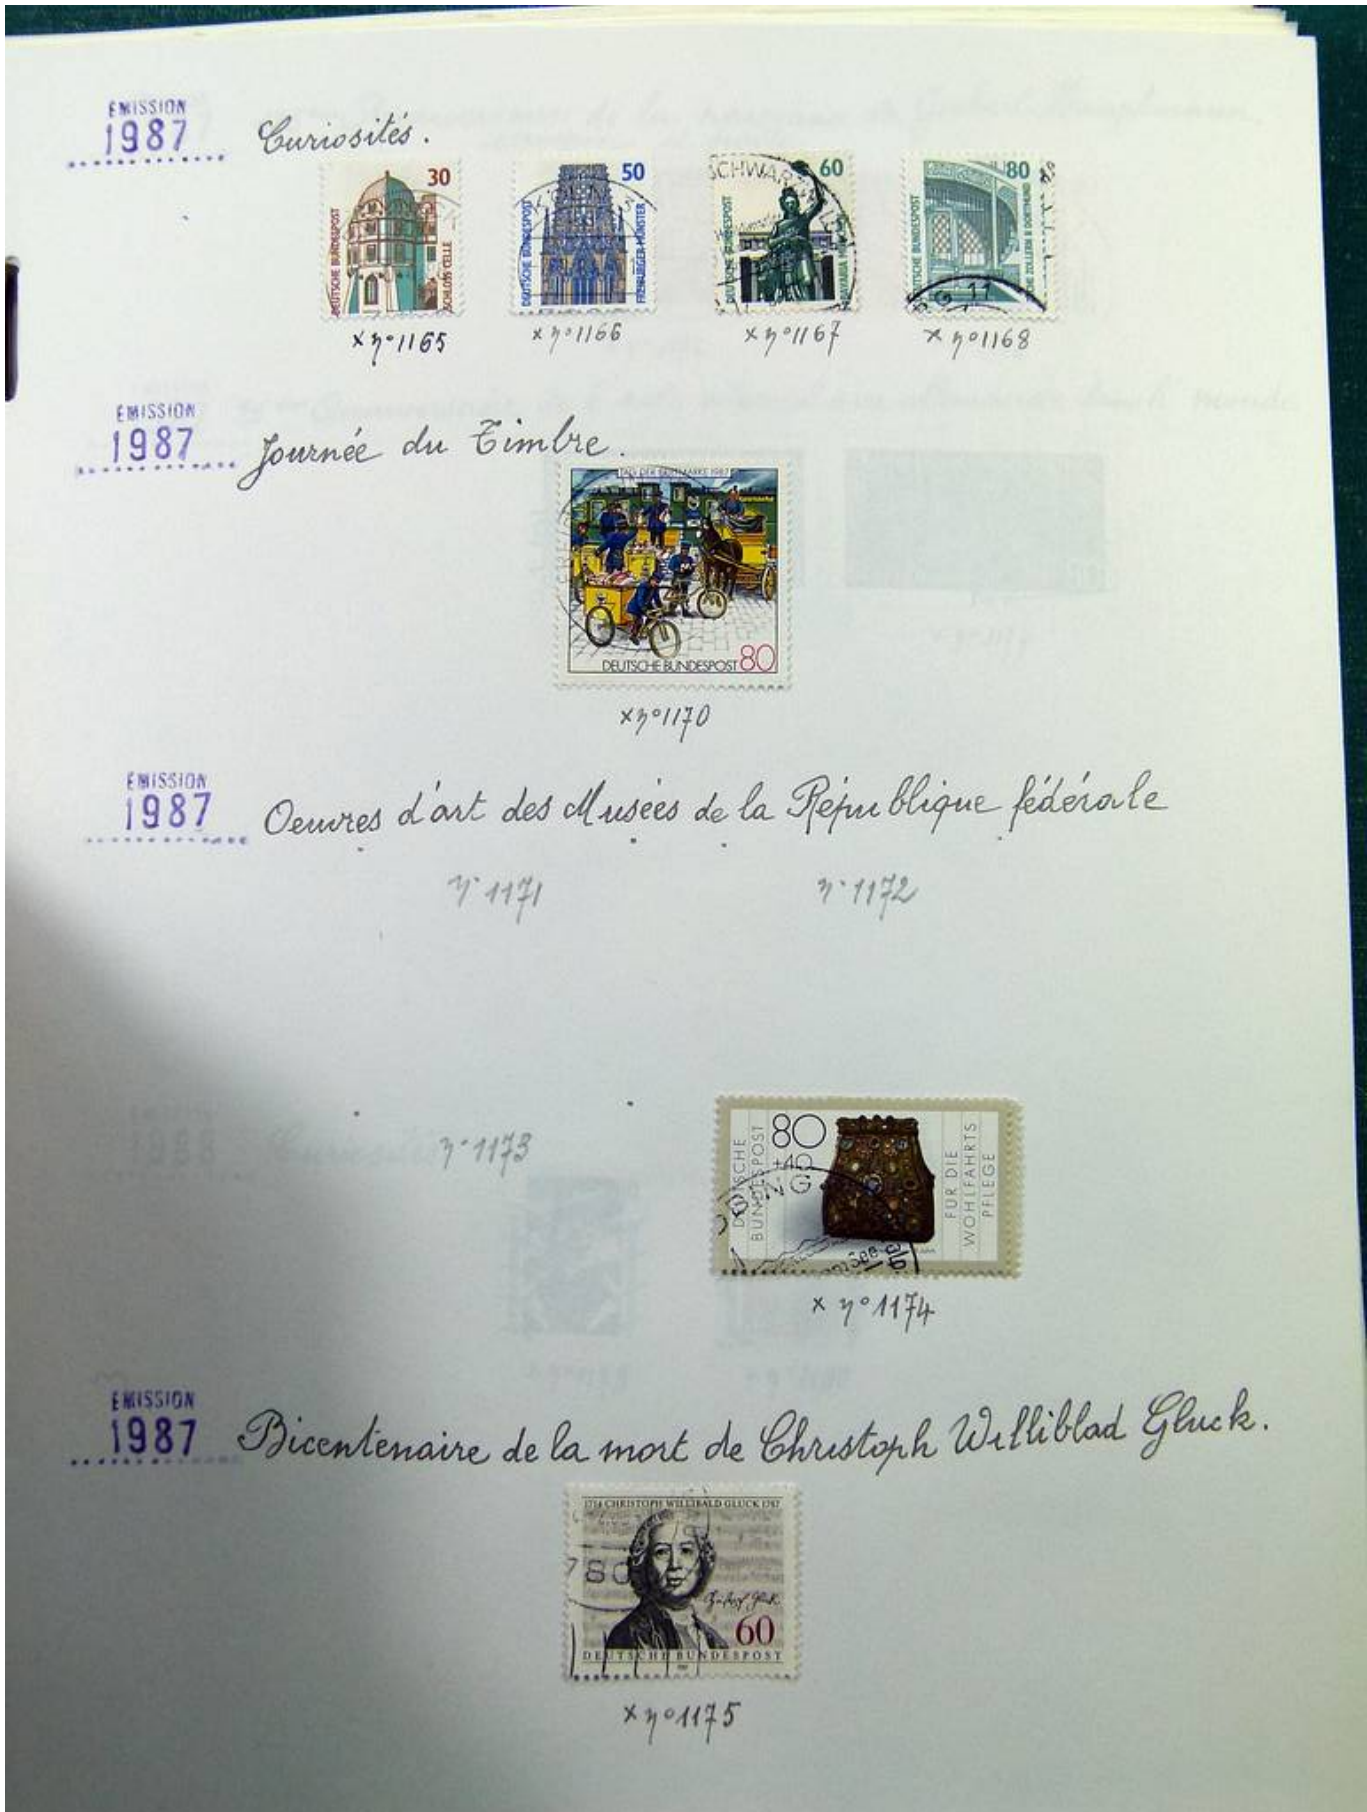 ÉMISSION
1987
Curiosités.
30
DEUTSCHE BUNDESPOST
SCHLOSS CELLE
50
DEUTSCHE BUNDESPOST
FREIBURGER MÜNSTER
KÖLN
60
DEUTSCHE BUNDESPOST
SCHWAR
80
DEUTSCHE BUNDESPOST
ZOLLERN II DORTMUND
11
x n°1165
x n°1166
x n°1167
x n°1168
ÉMISSION
1987
Journée du Timbre.
TAG DER BRIEFMARKE 1987
DEUTSCHE BUNDESPOST 80
x n°1170
ÉMISSION
1987
Oeuvres d'art des Musées de la République fédérale
n° 1171
n° 1172
n° 1173
80
+40
DEUTSCHE
BUNDESPOST
FÜR DIE
WOHLFAHRTS
PFLEGE
x n° 1174
ÉMISSION
1987
Bicentenaire de la mort de Christoph Williblad Gluck.
1714 CHRISTOPH WILLIBALD GLUCK 1787
780
60
DEUTSCHE BUNDESPOST
x n°1175